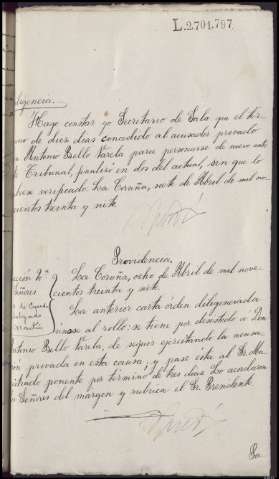 L.2.704.797
ligencia.
Hago constar yo Secretario de Sala que el tér-
no de diez dias concedido al acusador privado
Antonio Bello Varela para personarse de nuevo ante
Tribunal, finalizo en dos del actual, sin que lo
haya verificado. La Coruña, siete de Abril de mil no-
cientos treinta y siete
Providencia,
La Coruña, ocho de Abril de mil nove-
cientos treinta y siete.
ñores
La anterior carta órden diligenciada
únase al rollo; se tiene por desistido a Don
Antonio Bello Varela, de seguir ejercitando la acusa-
ón privada en esta causa, y pase esta al Sr. Ma-
istrado ponente por término de tres dias. Lo acordaron
Señores del margen y rubrica el Sr. Presidente